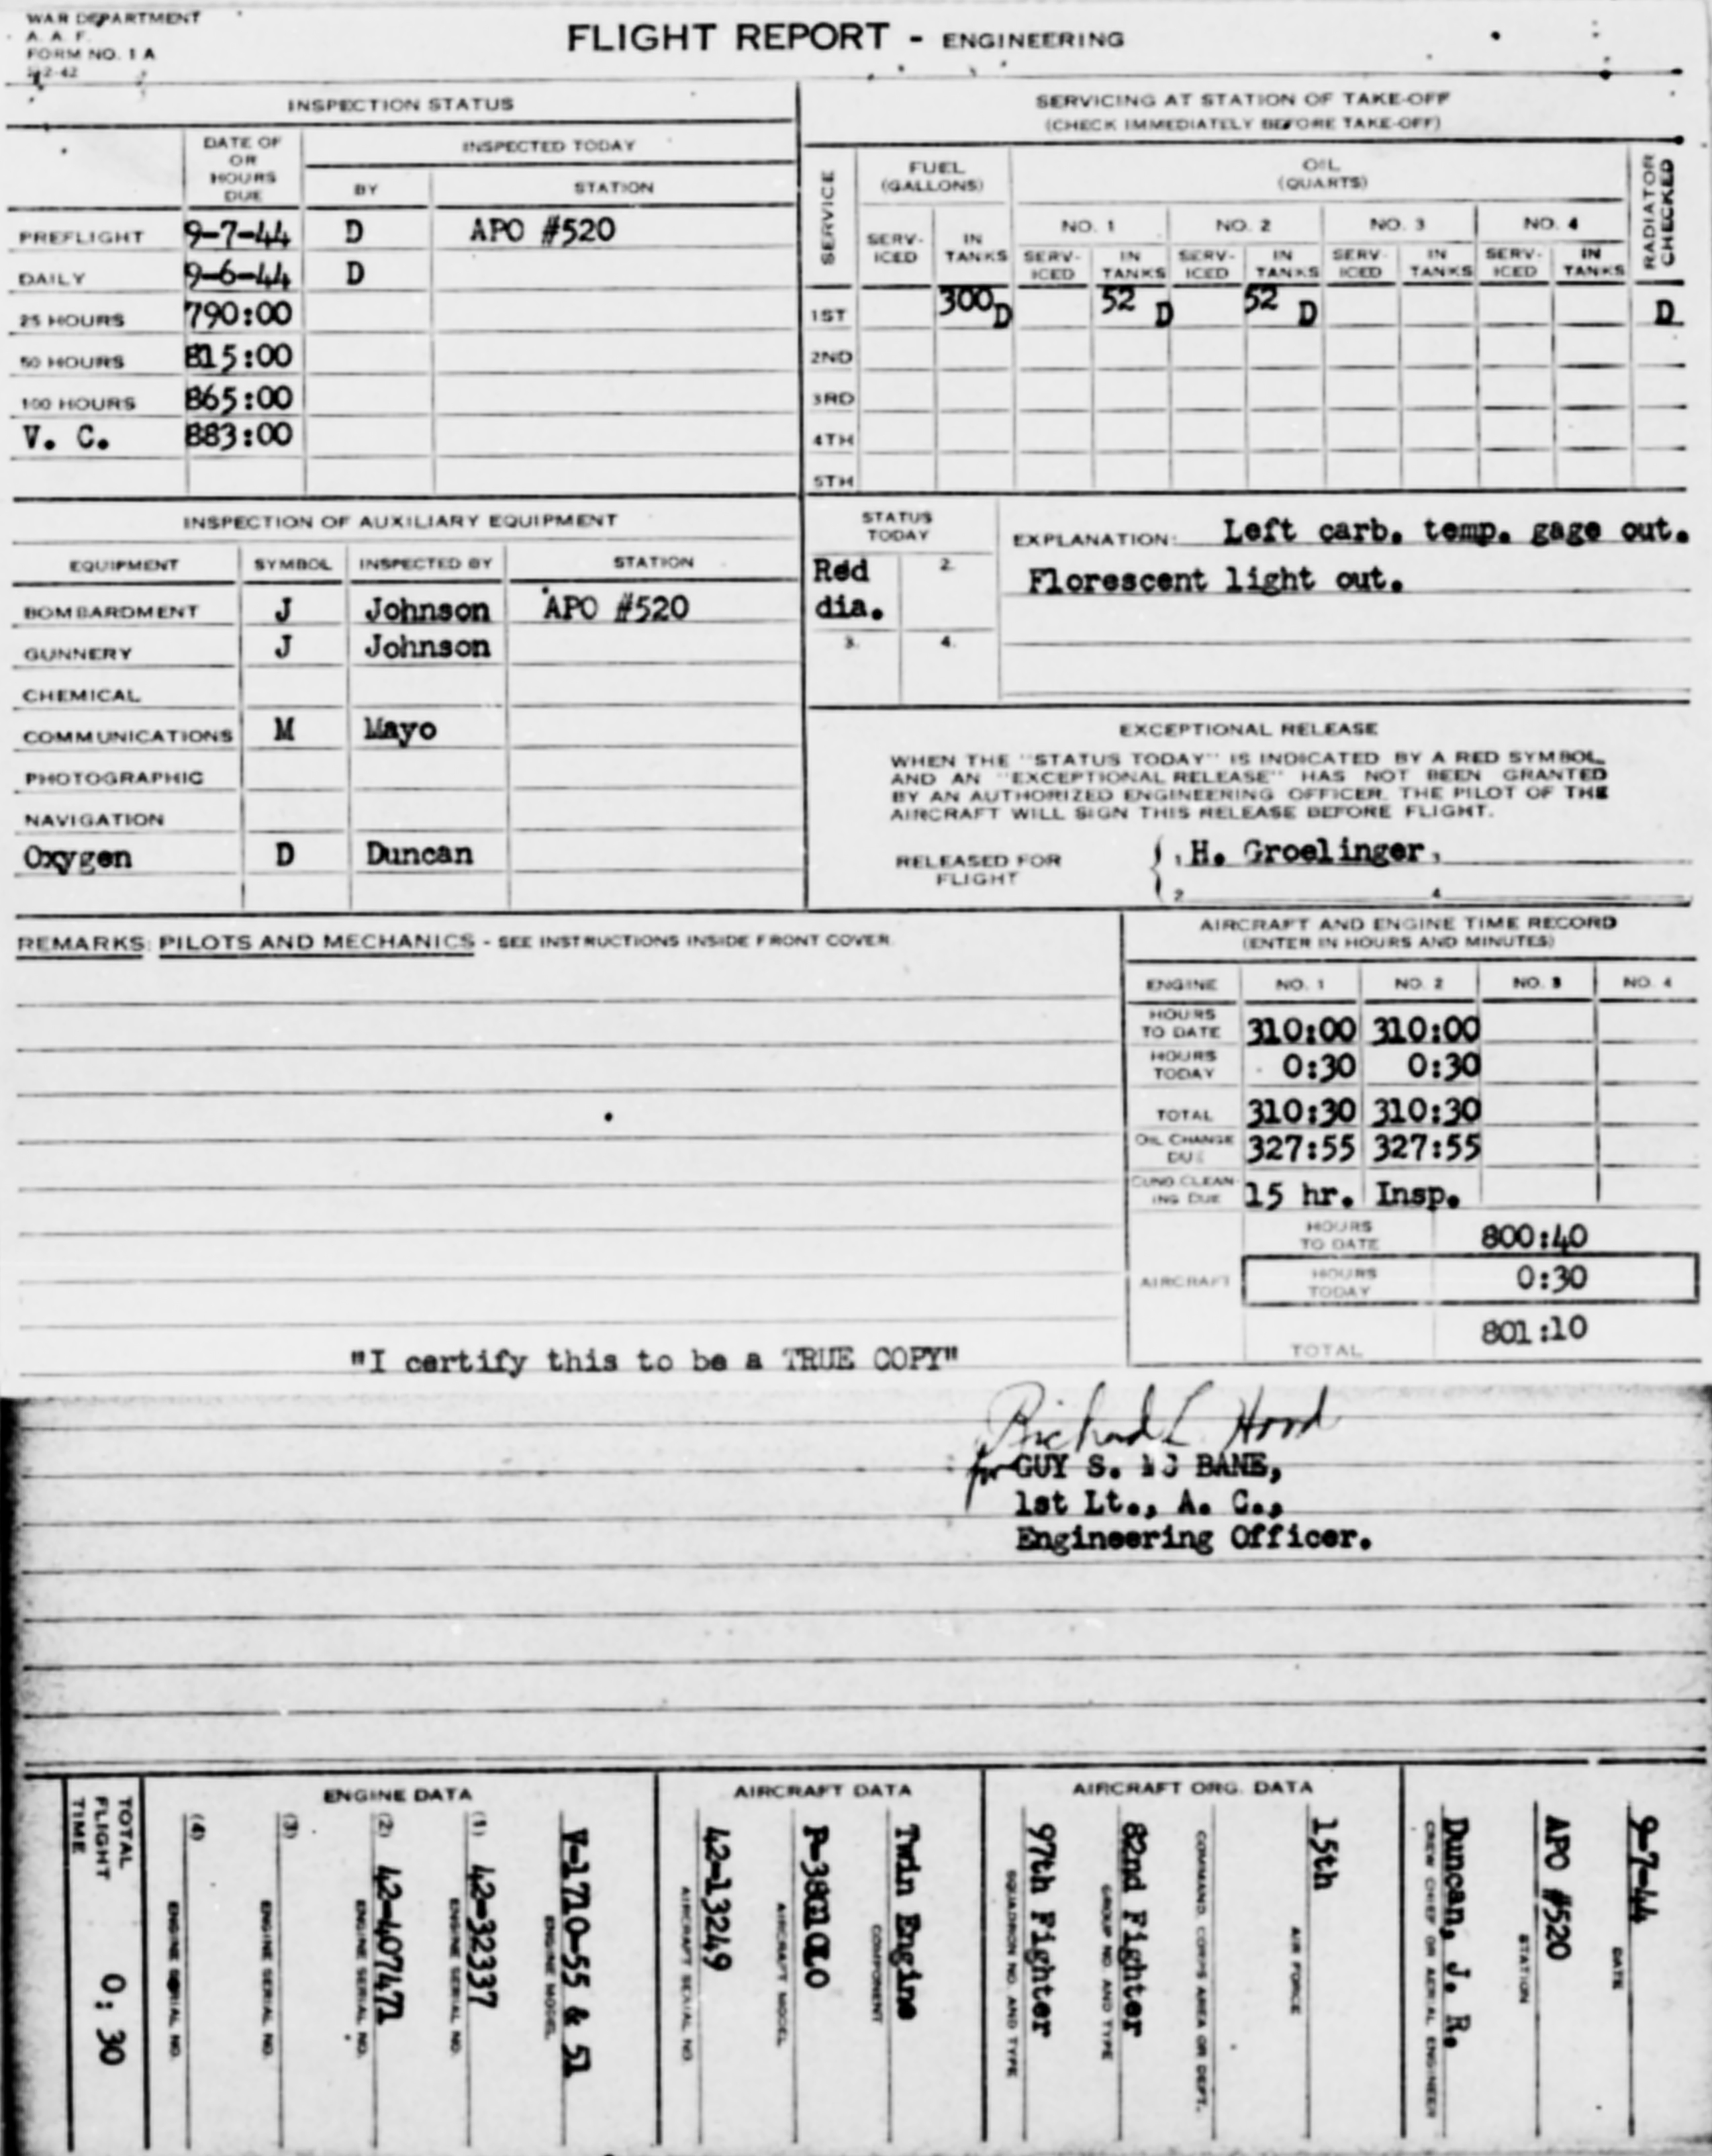 WAR DEPARTMENT
A. A. F.
FORM NO. 1 A
FLIGHT REPORT - ENGINEERING
INSPECTION STATUS
DATE OF OR HOURS DUE
INSPECTED TODAY
BY STATION
PREFLIGHT 9-7-44 D APO #520
DAILY 9-6-44 D
25 HOURS 790:00
50 HOURS 815:00
100 HOURS 865:00
V. C. 883:00
SERVICING AT STATION OF TAKE-OFF
(CHECK IMMEDIATELY BEFORE TAKE-OFF)
SERVICE
FUEL (GALLONS)
OIL (QUARTS)
RADIATOR CHECKED
NO. 1 NO. 2 NO. 3 NO. 4
SERV-ICED IN TANKS SERV-ICED IN TANKS SERV-ICED IN TANKS SERV-ICED IN TANKS SERV-ICED IN TANKS
1ST 300 D 52 D 52 D D
2ND
3RD
4TH
5TH
INSPECTION OF AUXILIARY EQUIPMENT
EQUIPMENT SYMBOL INSPECTED BY STATION
BOMBARDMENT J Johnson APO #520
GUNNERY J Johnson
CHEMICAL
COMMUNICATIONS M Mayo
PHOTOGRAPHIC
NAVIGATION
Oxygen D Duncan
STATUS TODAY
Red dia.
2.
3. 4.
EXPLANATION: Left carb. temp. gage out.
Florescent light out.
EXCEPTIONAL RELEASE
WHEN THE "STATUS TODAY" IS INDICATED BY A RED SYMBOL,
AND AN "EXCEPTIONAL RELEASE" HAS NOT BEEN GRANTED
BY AN AUTHORIZED ENGINEERING OFFICER, THE PILOT OF THE
AIRCRAFT WILL SIGN THIS RELEASE BEFORE FLIGHT.
RELEASED FOR FLIGHT
H. Groelinger
2 4
REMARKS: PILOTS AND MECHANICS - SEE INSTRUCTIONS INSIDE FRONT COVER.
AIRCRAFT AND ENGINE TIME RECORD
(ENTER IN HOURS AND MINUTES)
ENGINE NO. 1 NO. 2 NO. 3 NO. 4
HOURS TO DATE 310:00 310:00
HOURS TODAY 0:30 0:30
TOTAL 310:30 310:30
OIL CHANGE DUE 327:55 327:55
CUNO CLEAN-ING DUE 15 hr. Insp.
AIRCRAFT
HOURS TO DATE 800:40
HOURS TODAY 0:30
TOTAL 801:10
"I certify this to be a TRUE COPY"
Richard L. Hood
for GUY S. BANE,
1st Lt., A. C.,
Engineering Officer.
9-7-44
DATE
APO #520
STATION
Duncan, J. R.
CREW CHIEF OR AERIAL ENGINEER
AIRCRAFT ORG. DATA
15th
AIR FORCE
COMMAND, CORPS AREA OR DEPT.
82nd Fighter
GROUP NO. AND TYPE
97th Fighter
SQUADRON NO. AND TYPE
AIRCRAFT DATA
Twin Engine
COMPONENT
AIRCRAFT MODEL
42-13249
AIRCRAFT SERIAL NO.
ENGINE DATA
V-1710-55 & 51
ENGINE MODEL
(1) 42-32337
ENGINE SERIAL NO.
(2) 42-407471
ENGINE SERIAL NO.
(3)
ENGINE SERIAL NO.
(4)
ENGINE SERIAL NO.
TOTAL FLIGHT TIME 0:30